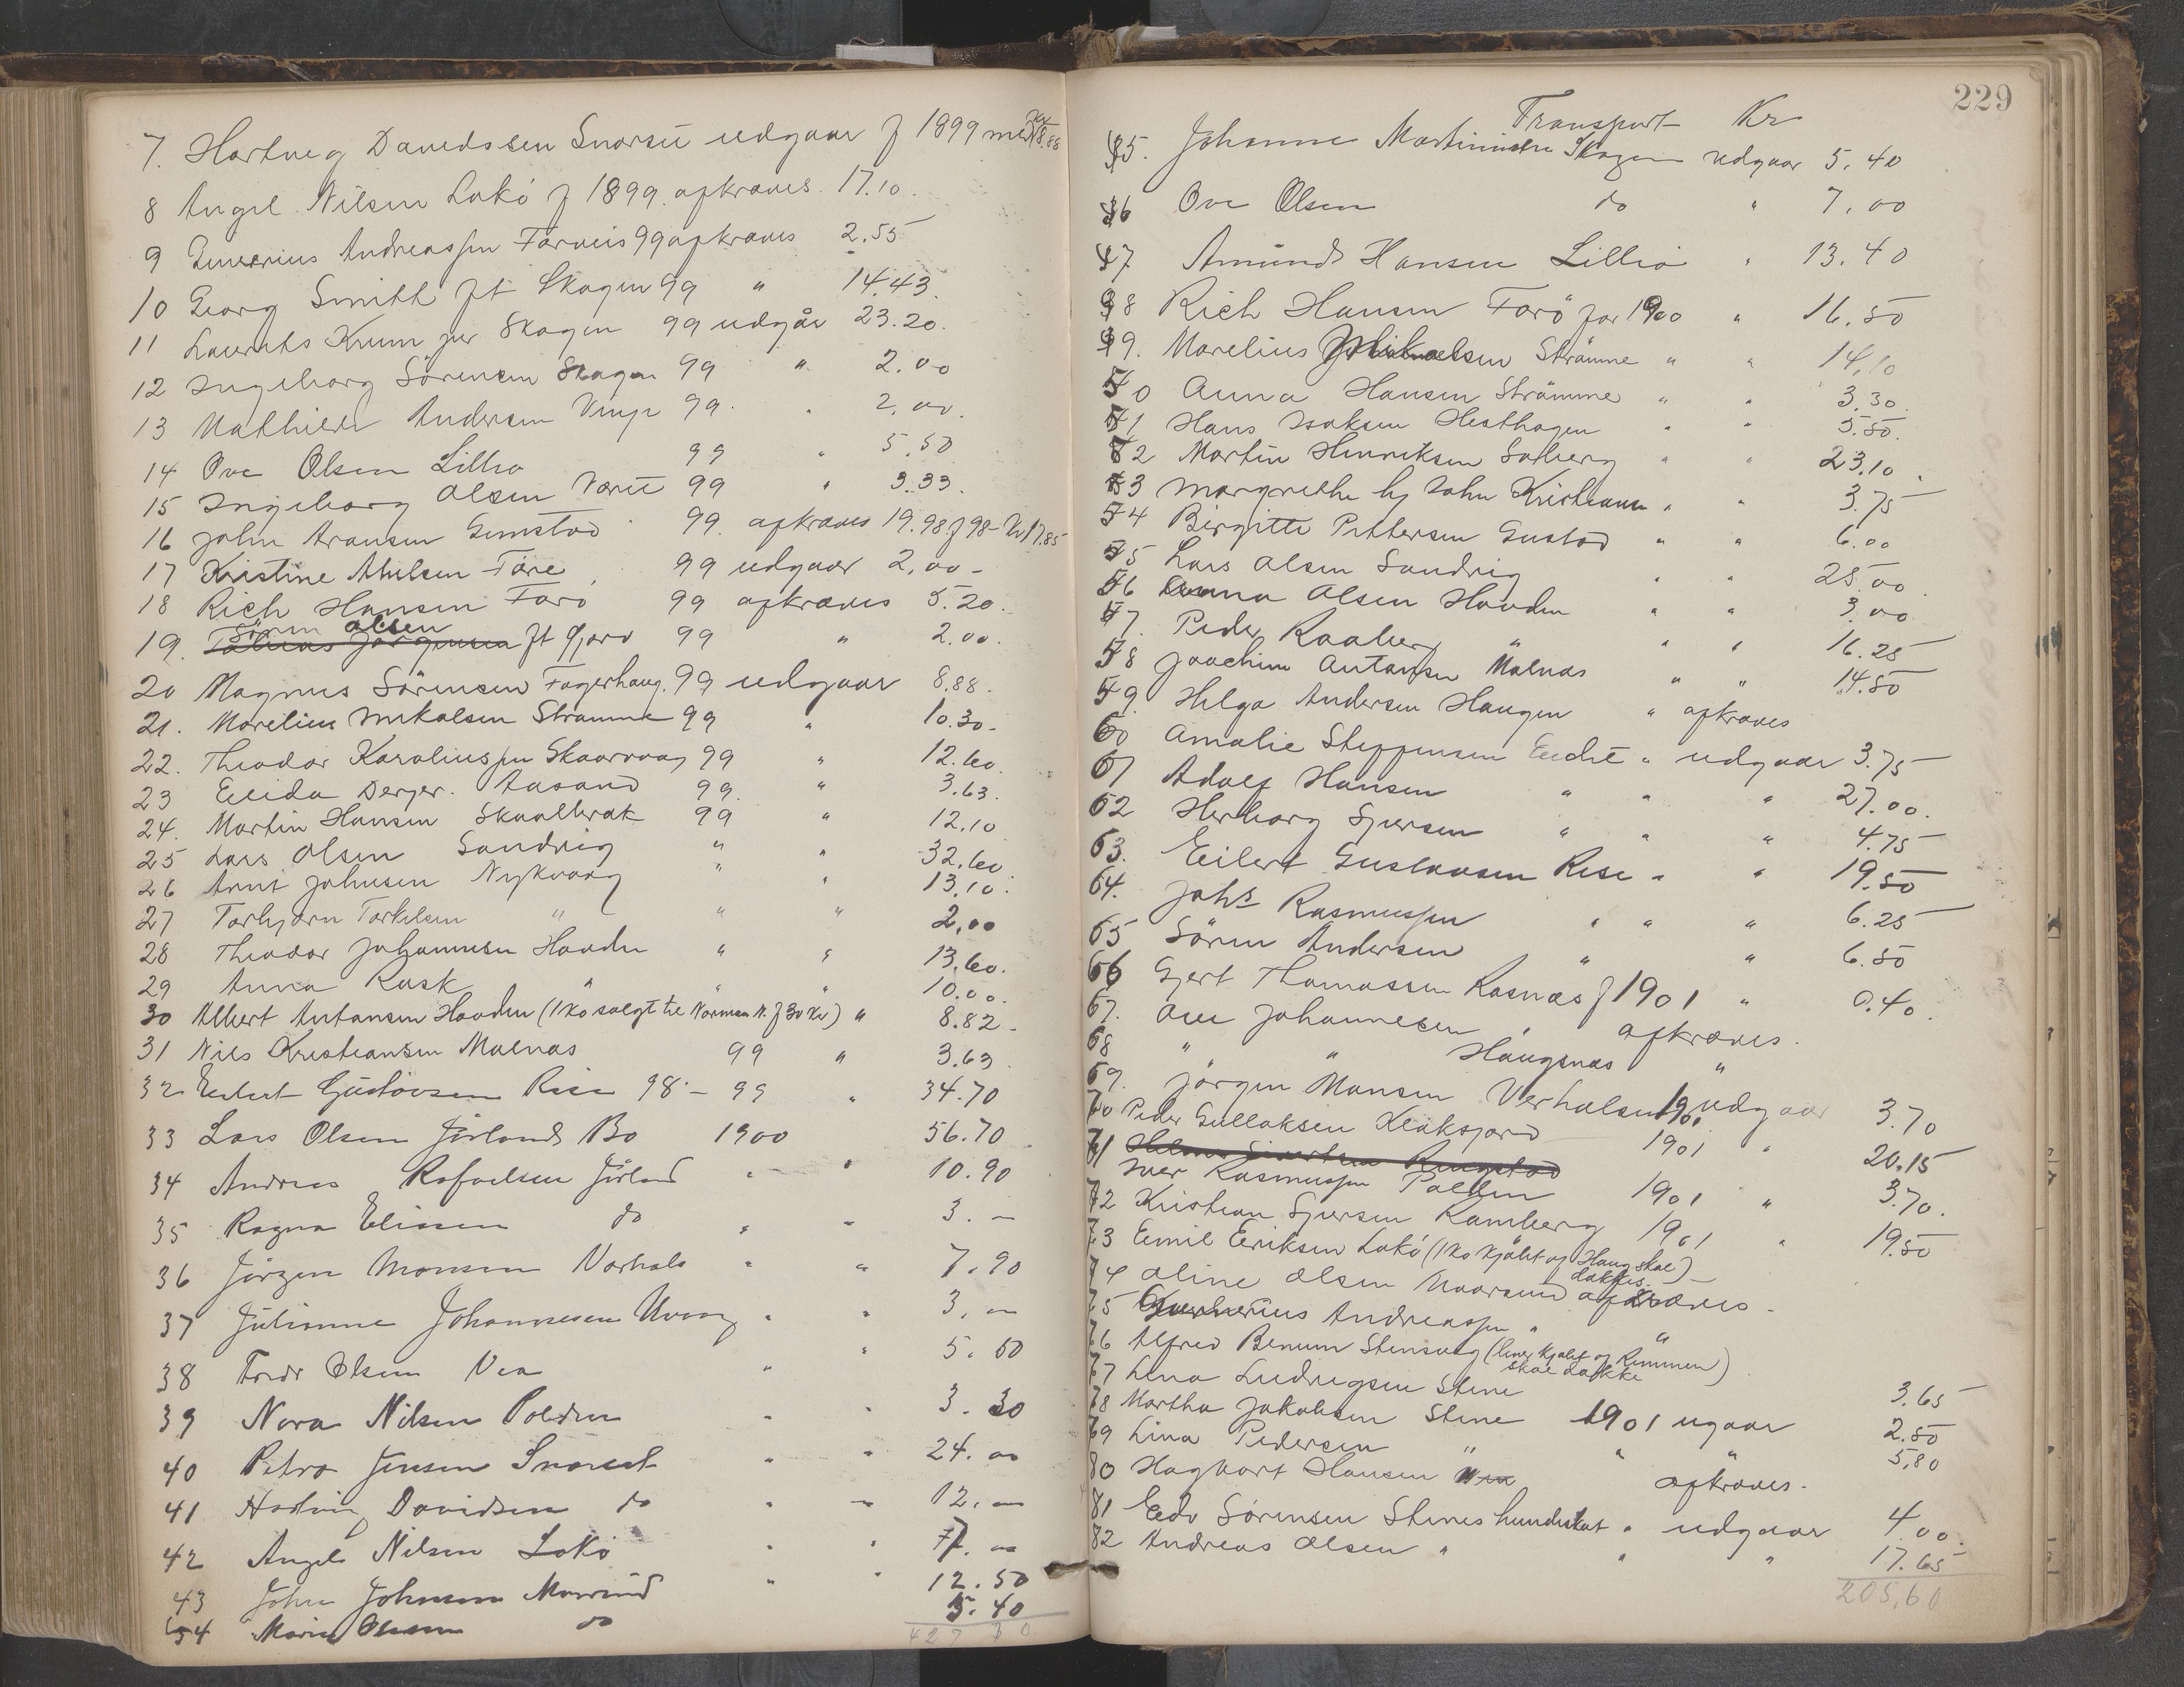 7. Hartvig Davidssen Snarset udgaar f 1899 med Kr 8.88
8 Angel Nilsen Lokö f 1899. afkræves. 17.10.
9 Andreassen 99 afkræves 2.55
10 Georg Smith ft Skagen 99 " 14.43.
11 Laurits Krum jur Skagen 99 udgår 23.20.
12 Ingeborg Sörensen Skagen 99 " 2.00
13 Mathilde Andersen Vinje 99. " 2,00.
14 Ove Olsen Lillio 99 " 5.50
15 Ingeborg Olsen 99 " 3.33.
16 John Aronsen Grimstad 99. afkræves 19.98. f 98 - Kr 17.85
17 Kristine Nilsen Före 99 udgaar 2,00 -
18 Rich Hansen Farö 99 afkræves 5.20.
19. Sören Olsen ft Gjorv 99 " 2.00.
20 Magnus Sörensen Fagerhaug. 99 udgaar 8.88.
21. Marelius Mikalsen Stramme 99 " 10.30.
22. Theodor Karoliussen Skaarvaag 99 " 12.60.
23 Elida Aasand 99. " 3.63.
24. Martin Hansen Skaalbrak 99 " 12.10
25 Lars Olsen Sandvig " " 32.60
26 Arnt Johnsen Nykvaag " " 13.10.
27 Torbjörn Torkilsen " " " 2,00
28 Theodor Johannesen Hovden " " 13.60.
29 Anna Rask " " " 10.00.
30 Albert Antonsen Hovden (1 Ko solgt til Norman N. f 30 Kr) " 8.82 -
31 Nils Kristiansen Malnæs 99 " 3.63
32 Eilert Gustavsen Rise 98 - 99 " 34.70
33 Lars Olsen Jörland Bö 1900 56.70
34 Andreas Rafaelsen Jörland " " 10.90
35 Ragna Elissen do " " 3. -
36 Jörgen Monsen Værhals " " 7.90
37 Julianne Johannessen Uvaag " " 3. -
38 Olsen Vea " " 5. 60
39 Nora Nilsen Polden " " 3. 30
40 Petra Jensen Snarset " " 24. 00
41 Hartvig Davidsen do " " 12. -
42 Angel Nilsen Lokö " " 77. 00
43 John Johnsen " " 12. 50
44 Marie Olsen do 5. 40
427 70
229
Transport Kr
45. Johanne Martinussen Skagen udgaar 5. 40
46 Ove Olsen do " 7, 00
47 Amund Hansen Lillio " 13. 40
48 Rich Hansen Farö for 1900 " 16. 50
49. Marelius Mikaelsen Strömme " " 14,10
50 Anna Hansen Strömme " " 3.30.
51 Hans Isaksen Hesthagen " " 5.50.
52 Martin Henriksen Saberg " " 23.10.
53 Margrethe hj John Kristiansen " " 3.75
54 Birgitte Pettersen Gustad " " 6.00
55 Lars Olsen Sandvig " " 25.00
56 Anna Olsen Hovden " " 3.00
57. Peder Raaberg " " " 16.25
58 Joachim Antonsen Malnæs " " 14.50
59. Helga Andersen Haugen " afkræves
60 Amalie Steffensen Eidet " udgaar 3.75
61 Adolf Hansen " " " 27.00.
62 Herborg Sjursen " " " 4.75
63. Eilert Gustavsen Rise " " 19.50
64. Johs Rasmussen " " " 6.25
65 Sören Andersen " " 6.50
66 Gjert Thomassen Rasnæs f 1901 " 0.40.
67. Ole Johannesen " afkræves.
68 " " Haugsnæs "
69. Jörgen Monsen Verhalsen 1901 udgaar 3.70
70 Peder Gullaksen Klaksjord 1901 " 20.15
71 Iver Rasmussen Polden 1901 " 3.70.
72 Kristian Sjursen Ramberg 1901 " 19.50
73 Emil Eriksen Lokö (1 Ko kjöbt af Haug skal)
dækkes.
74 Oline Olsen afkræves -
75 Andreassen " "
76 Alfred Benum Stensvag (liner kjöbt af Rimmen)
skal dække
77 Lena Ludvigsen Stene 3.65
78 Martha Jakobsen Stene 1901 ugaar 2.50
79 Lina Pedersen " " " 5,80
80 Hagbart Hansen " afkræves.
81 Edv Sörensen Stenes hundeskat " udgaar 4 00.
82 Andreas Olsen " " " 17.65
205,60